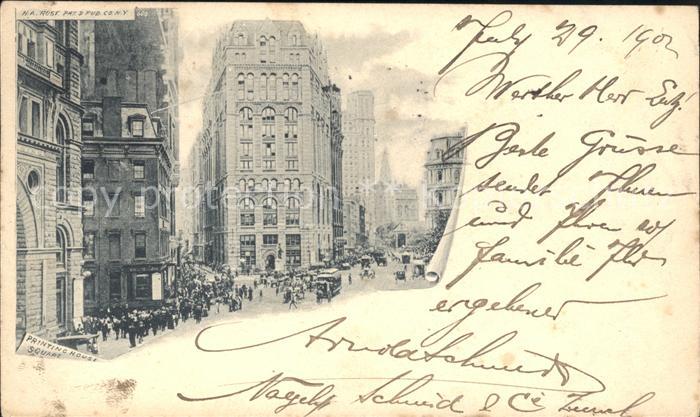 H.A. ROST PAT & PUB. CO. N.Y.
PRINTING HOUSE
SQUARE
July 29. 1902
Werther Herr
Beste Grüsse
sendet Ihnen
und Ihrer
familie Ihr
ergebener
Arnold Schmidt
Schmid & Cie